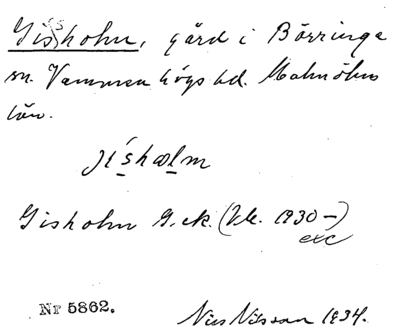 Gisholm, gård i Börringe
sn. Vemmenhögs hd. Malmöhus
län.
Jísholm
Gisholm G.ek. (Bl. 1930-)
exc
Nr 5862.
Nils Nilsson 1934.